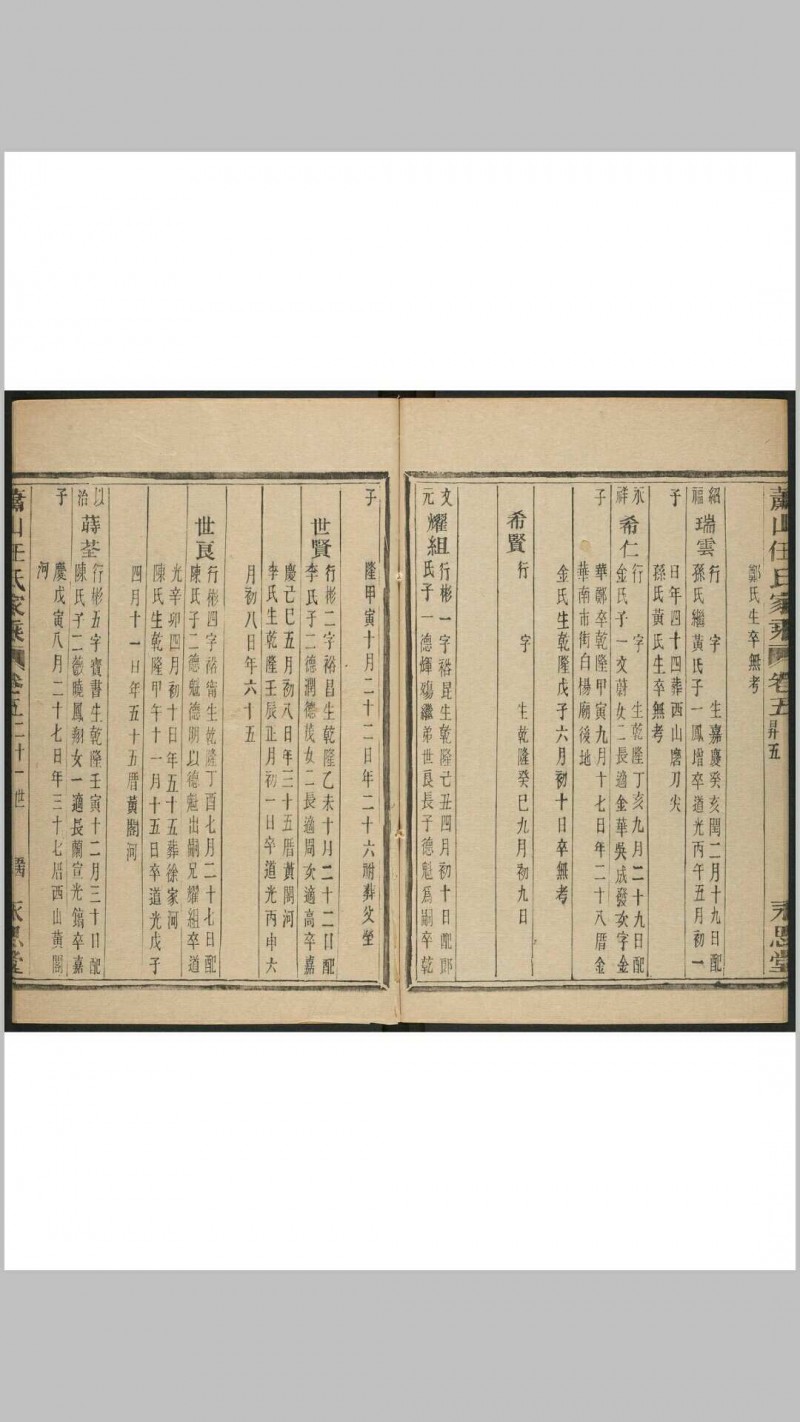 蕭山任氏家乘
卷五
昇五
永思堂
鄭氏生卒無考
紹福子
瑞雲
行 字 生嘉慶癸亥閏二月十九日配
孫氏繼黃氏子一鳳增卒道光丙午五月初一
日年四十四葬西山磨刀尖
孫氏黃氏生卒無考
永祥子
希仁
行 字 生乾隆丁亥九月二十九日配
金氏子一文蔚女二長適金華吳成發次字金
華鄭卒乾隆甲寅九月十七日年二十八厝金
華南市街白楊廟後地
金氏生乾隆戊子六月初十日卒無考
希賢
行 字 生乾隆癸巳九月初九日
文元子
耀組
行彬一字裕昆生乾隆己丑四月初十日配鄭
氏子一德輝殤繼弟世良長子德魁爲嗣卒乾
隆甲寅十月二十二日年二十六祔葬父塋
世賢
行彬二字裕昌生乾隆乙未十月二十二日配
李氏子二德潤德茂女二長適周次適高卒嘉
慶己巳五月初八日年三十五厝黃閣河
李氏生乾隆壬辰正月初一日卒道光丙申六
月初八日年六十五
世良
行彬四字裕甯生乾隆丁酉七月二十七日配
陳氏子二德魁德明以德魁出嗣兄耀組卒道
光辛卯四月初十日年五十五葬徐家河
陳氏生乾隆甲午十一月十五日卒道光戊子
四月十一日年五十五厝黃閣河
以治子
蒔荃
行彬五字寶書生乾隆壬寅十二月三十日配
陳氏子二德曉鳳翔女一適長蘭宣光鎬卒嘉
慶戊寅八月二十七日年三十七厝西山黃閣
河
蕭山任氏家乘
卷五二十一世
永思堂